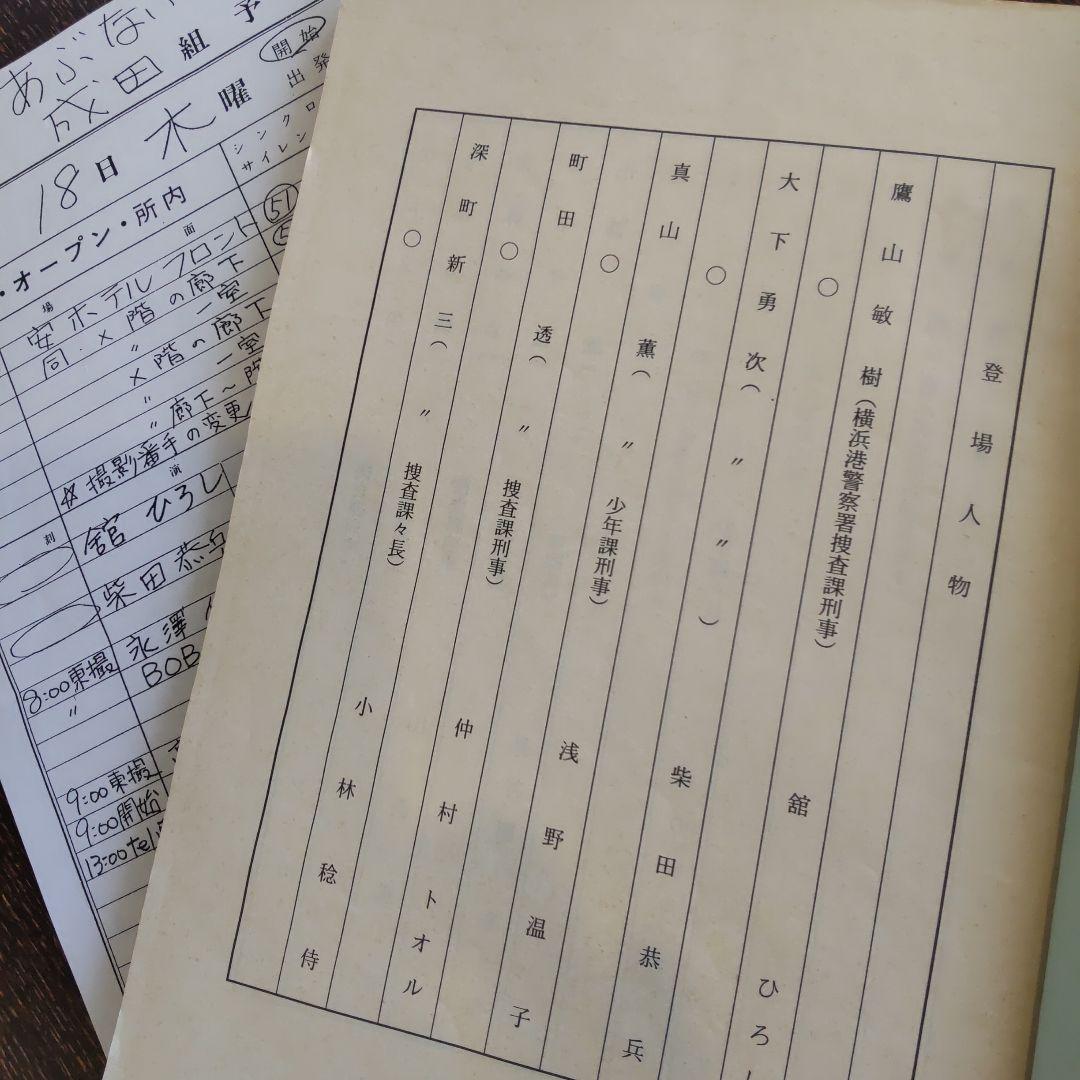 登場人物
鷹山敏樹（横浜港警察署捜査課刑事）
○ 舘ひろし
大下勇次（〃〃）
○ 柴田恭兵
真山薫（〃少年課刑事）
○ 浅野温子
町田透（〃捜査課刑事）
○ 仲村トオル
深町新三（〃捜査課々長）
○ 小林稔侍
あぶない
成田組予
18日木曜
開始
出発
シンクロ
サイレン
・オープン・所内
場面
安ホテルフロント
51
同・×階の廊下
〃 一室
×階の廊下
〃 一室
〃 廊下〜階
※撮影番手の変更
刻
演
舘ひろし
柴田恭兵
8:00東撮 永澤
〃 BOB
9:00東撮
9:00開始
13:00tel